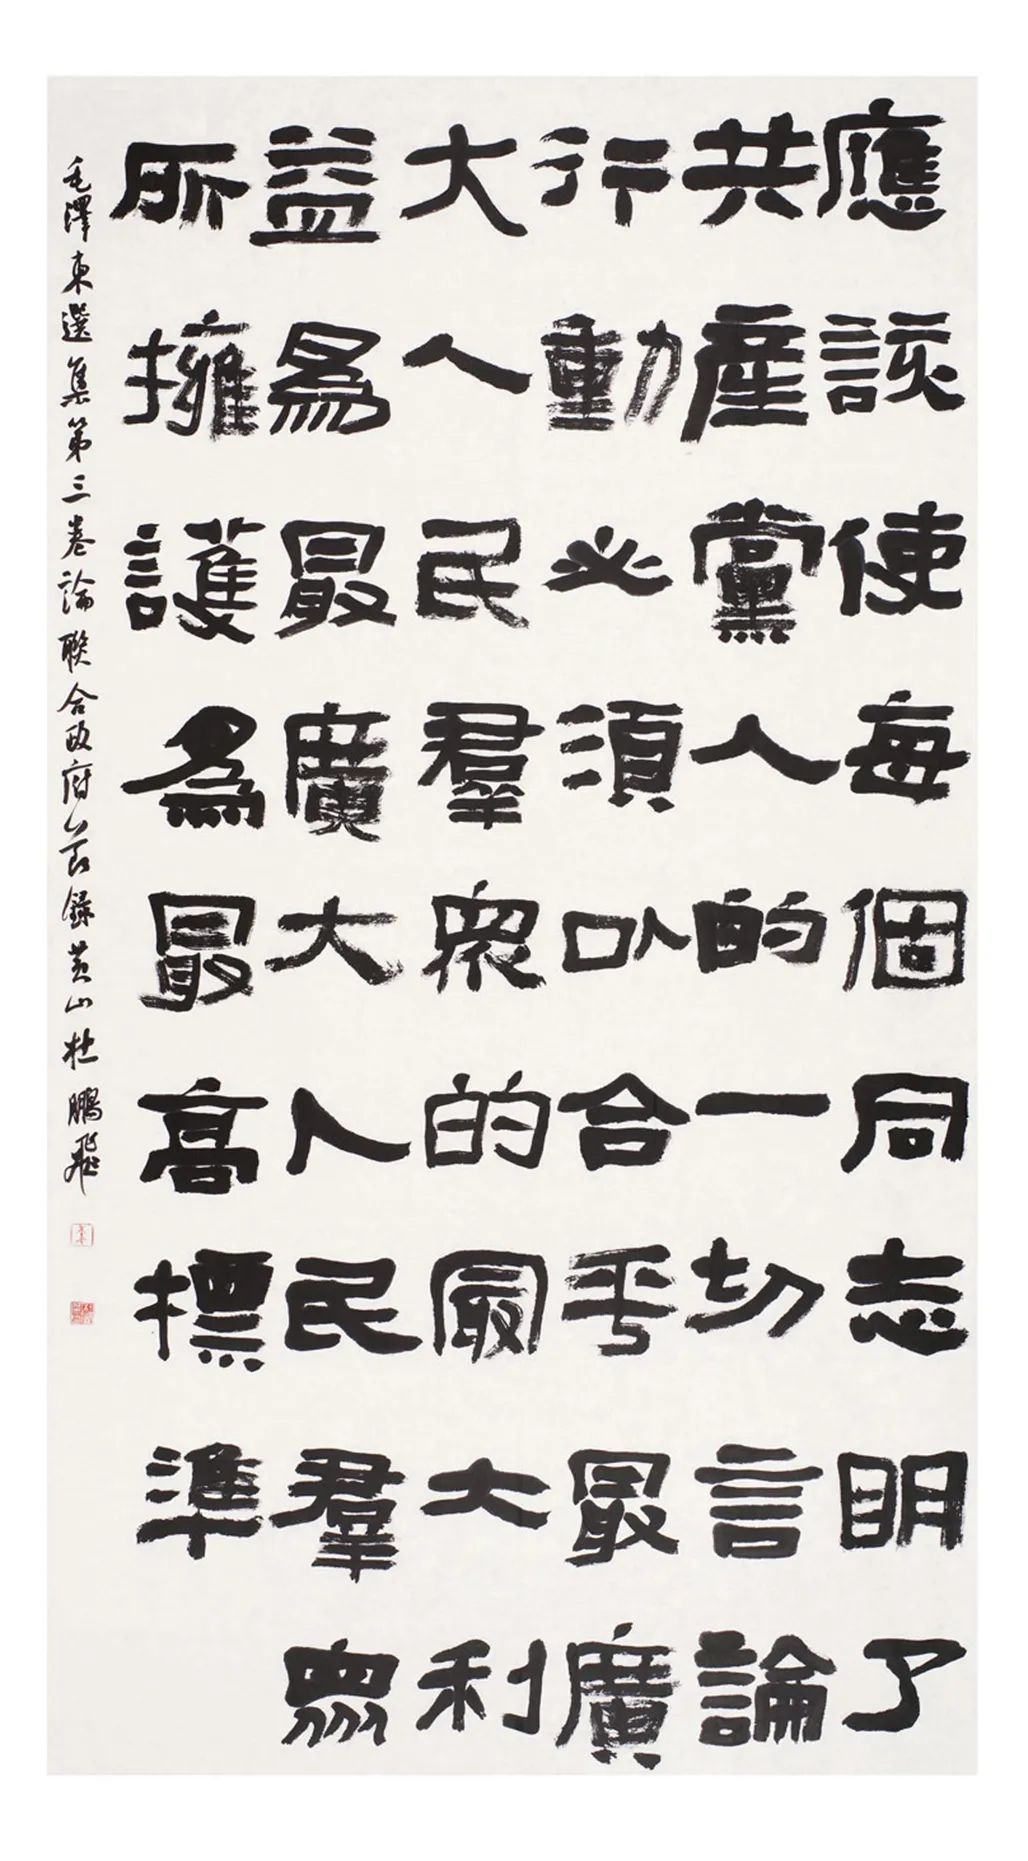 應該使每個同志明了
共產黨人的一切言論
行動必須以合乎最廣
大人民羣衆的最大利
益爲最廣大人民羣眾
所擁護爲最高標準
毛澤東選集第三卷論聯合政府節錄黄山杜鵬飛